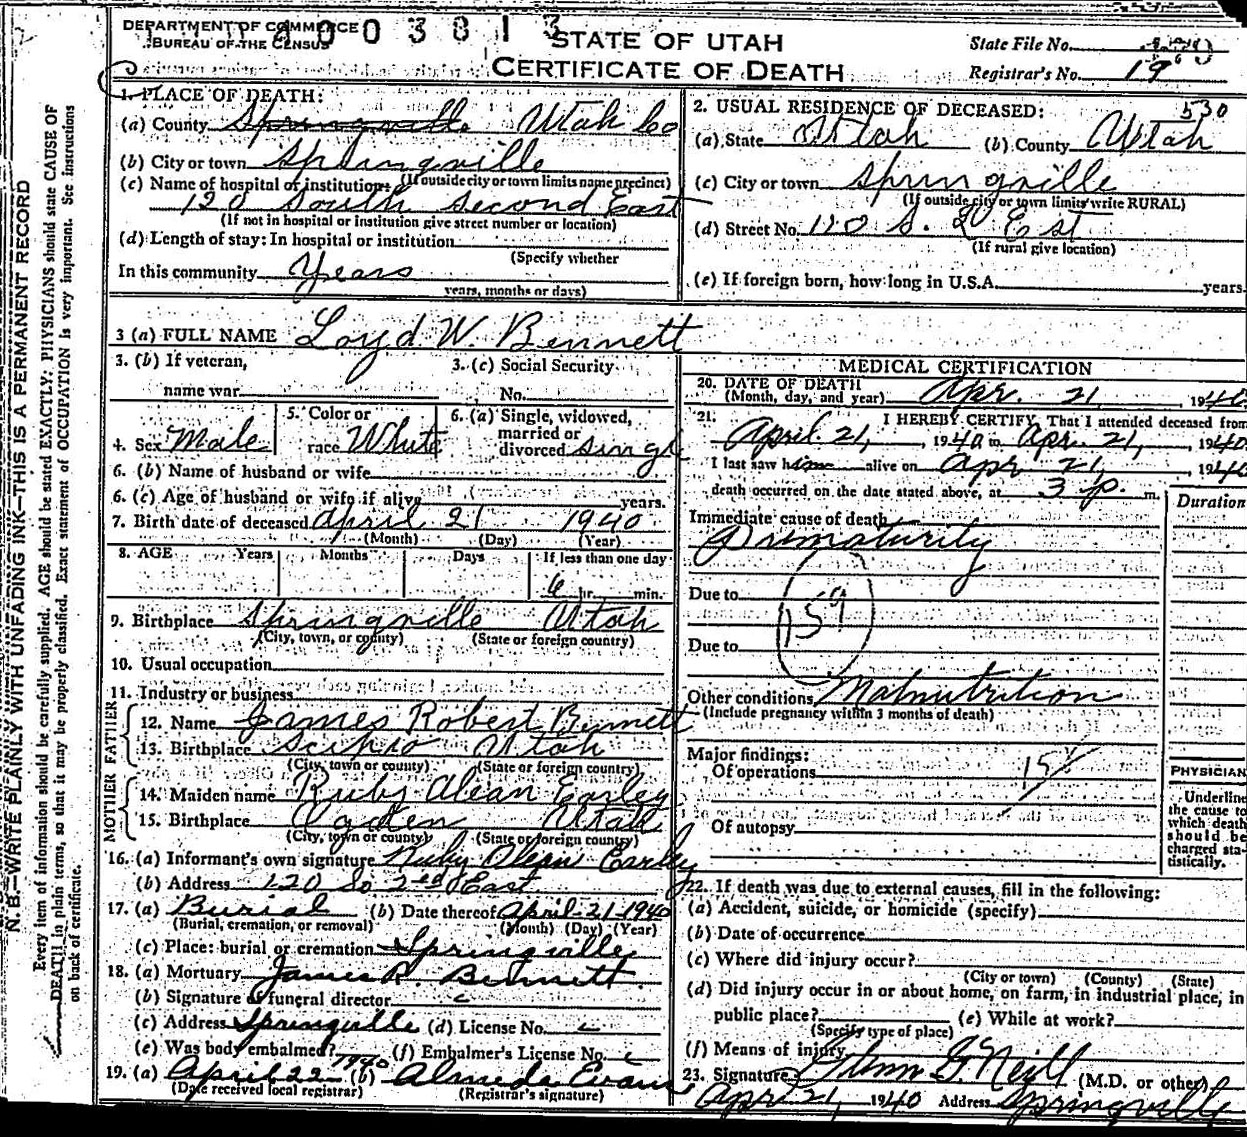 DEPARTMENT OF COMMERCE
BUREAU OF THE CENSUS
4003813
STATE OF UTAH
CERTIFICATE OF DEATH
State File No.
Registrar's No. 19
1. PLACE OF DEATH:
(a) County Springville Utah Co
(b) City or town Springville
(If outside city or town limits name precinct)
(c) Name of hospital or institution:
120 South Second East
(If not in hospital or institution give street number or location)
(d) Length of stay: In hospital or institution
(Specify whether
In this community Years
years, months or days)
2. USUAL RESIDENCE OF DECEASED: 530
(a) State Utah (b) County Utah
(c) City or town Springville
(If outside city or town limits write RURAL)
(d) Street No. 120 S. 2d East
(If rural give location)
(e) If foreign born, how long in U.S.A. years.
3 (a) FULL NAME Loyd W. Bennett
3. (b) If veteran,
name war
3. (c) Social Security
No.
4. Sex Male
5. Color or
race White
6. (a) Single, widowed,
married or
divorced Single
6. (b) Name of husband or wife
6. (c) Age of husband or wife if alive years.
7. Birth date of deceased April 21 1940
(Month) (Day) (Year)
8. AGE Years Months Days If less than one day
6 hr. min.
9. Birthplace Springville Utah
(City, town, or county) (State or foreign country)
10. Usual occupation
11. Industry or business
FATHER
12. Name James Robert Bennett
13. Birthplace Scipio Utah
(City, town or county) (State or foreign country)
MOTHER
14. Maiden name Ruby Alean Earley
15. Birthplace Ogden Utah
(City, town or county) (State or foreign country)
16. (a) Informant's own signature Ruby Alean Earley
(b) Address 120 So 2nd East
17. (a) Burial (b) Date thereof April-21-1940
(Burial, cremation, or removal) (Month) (Day) (Year)
(c) Place: burial or cremation Springville
18. (a) Mortuary James R. Bennett.
(b) Signature of funeral director
(c) Address Springville (d) License No.
(e) Was body embalmed? (f) Embalmer's License No.
19. (a) April 22 1940 (b) Almeda Evans
(Date received local registrar) (Registrar's signature)
MEDICAL CERTIFICATION
20. DATE OF DEATH
(Month, day, and year) Apr. 21, 1940
21. I HEREBY CERTIFY, That I attended deceased from
April 21, 1940 to Apr. 21, 1940
I last saw him alive on Apr 21, 1940
death occurred on the date stated above, at 3 p. m.
Duration
Immediate cause of death
Prematurity
Due to
159
Due to
Other conditions Malnutrition
(Include pregnancy within 3 months of death)
Major findings:
Of operations
Of autopsy
PHYSICIAN
Underline
the cause to
which death
should be
charged sta-
tistically.
22. If death was due to external causes, fill in the following:
(a) Accident, suicide, or homicide (specify)
(b) Date of occurrence
(c) Where did injury occur?
(City or town) (County) (State)
(d) Did injury occur in or about home, on farm, in industrial place, in
public place? (e) While at work?
(Specify type of place)
(f) Means of injury
23. Signature Glenn G. Neill (M.D. or other)
Apr 21, 1940 Address Springville
N. B.—WRITE PLAINLY WITH UNFADING INK—THIS IS A PERMANENT RECORD
Every item of information should be carefully supplied. AGE should be stated EXACTLY; PHYSICIANS should state CAUSE OF
DEATH in plain terms, so that it may be properly classified. Exact statement of OCCUPATION is very important. See instructions
on back of certificate.